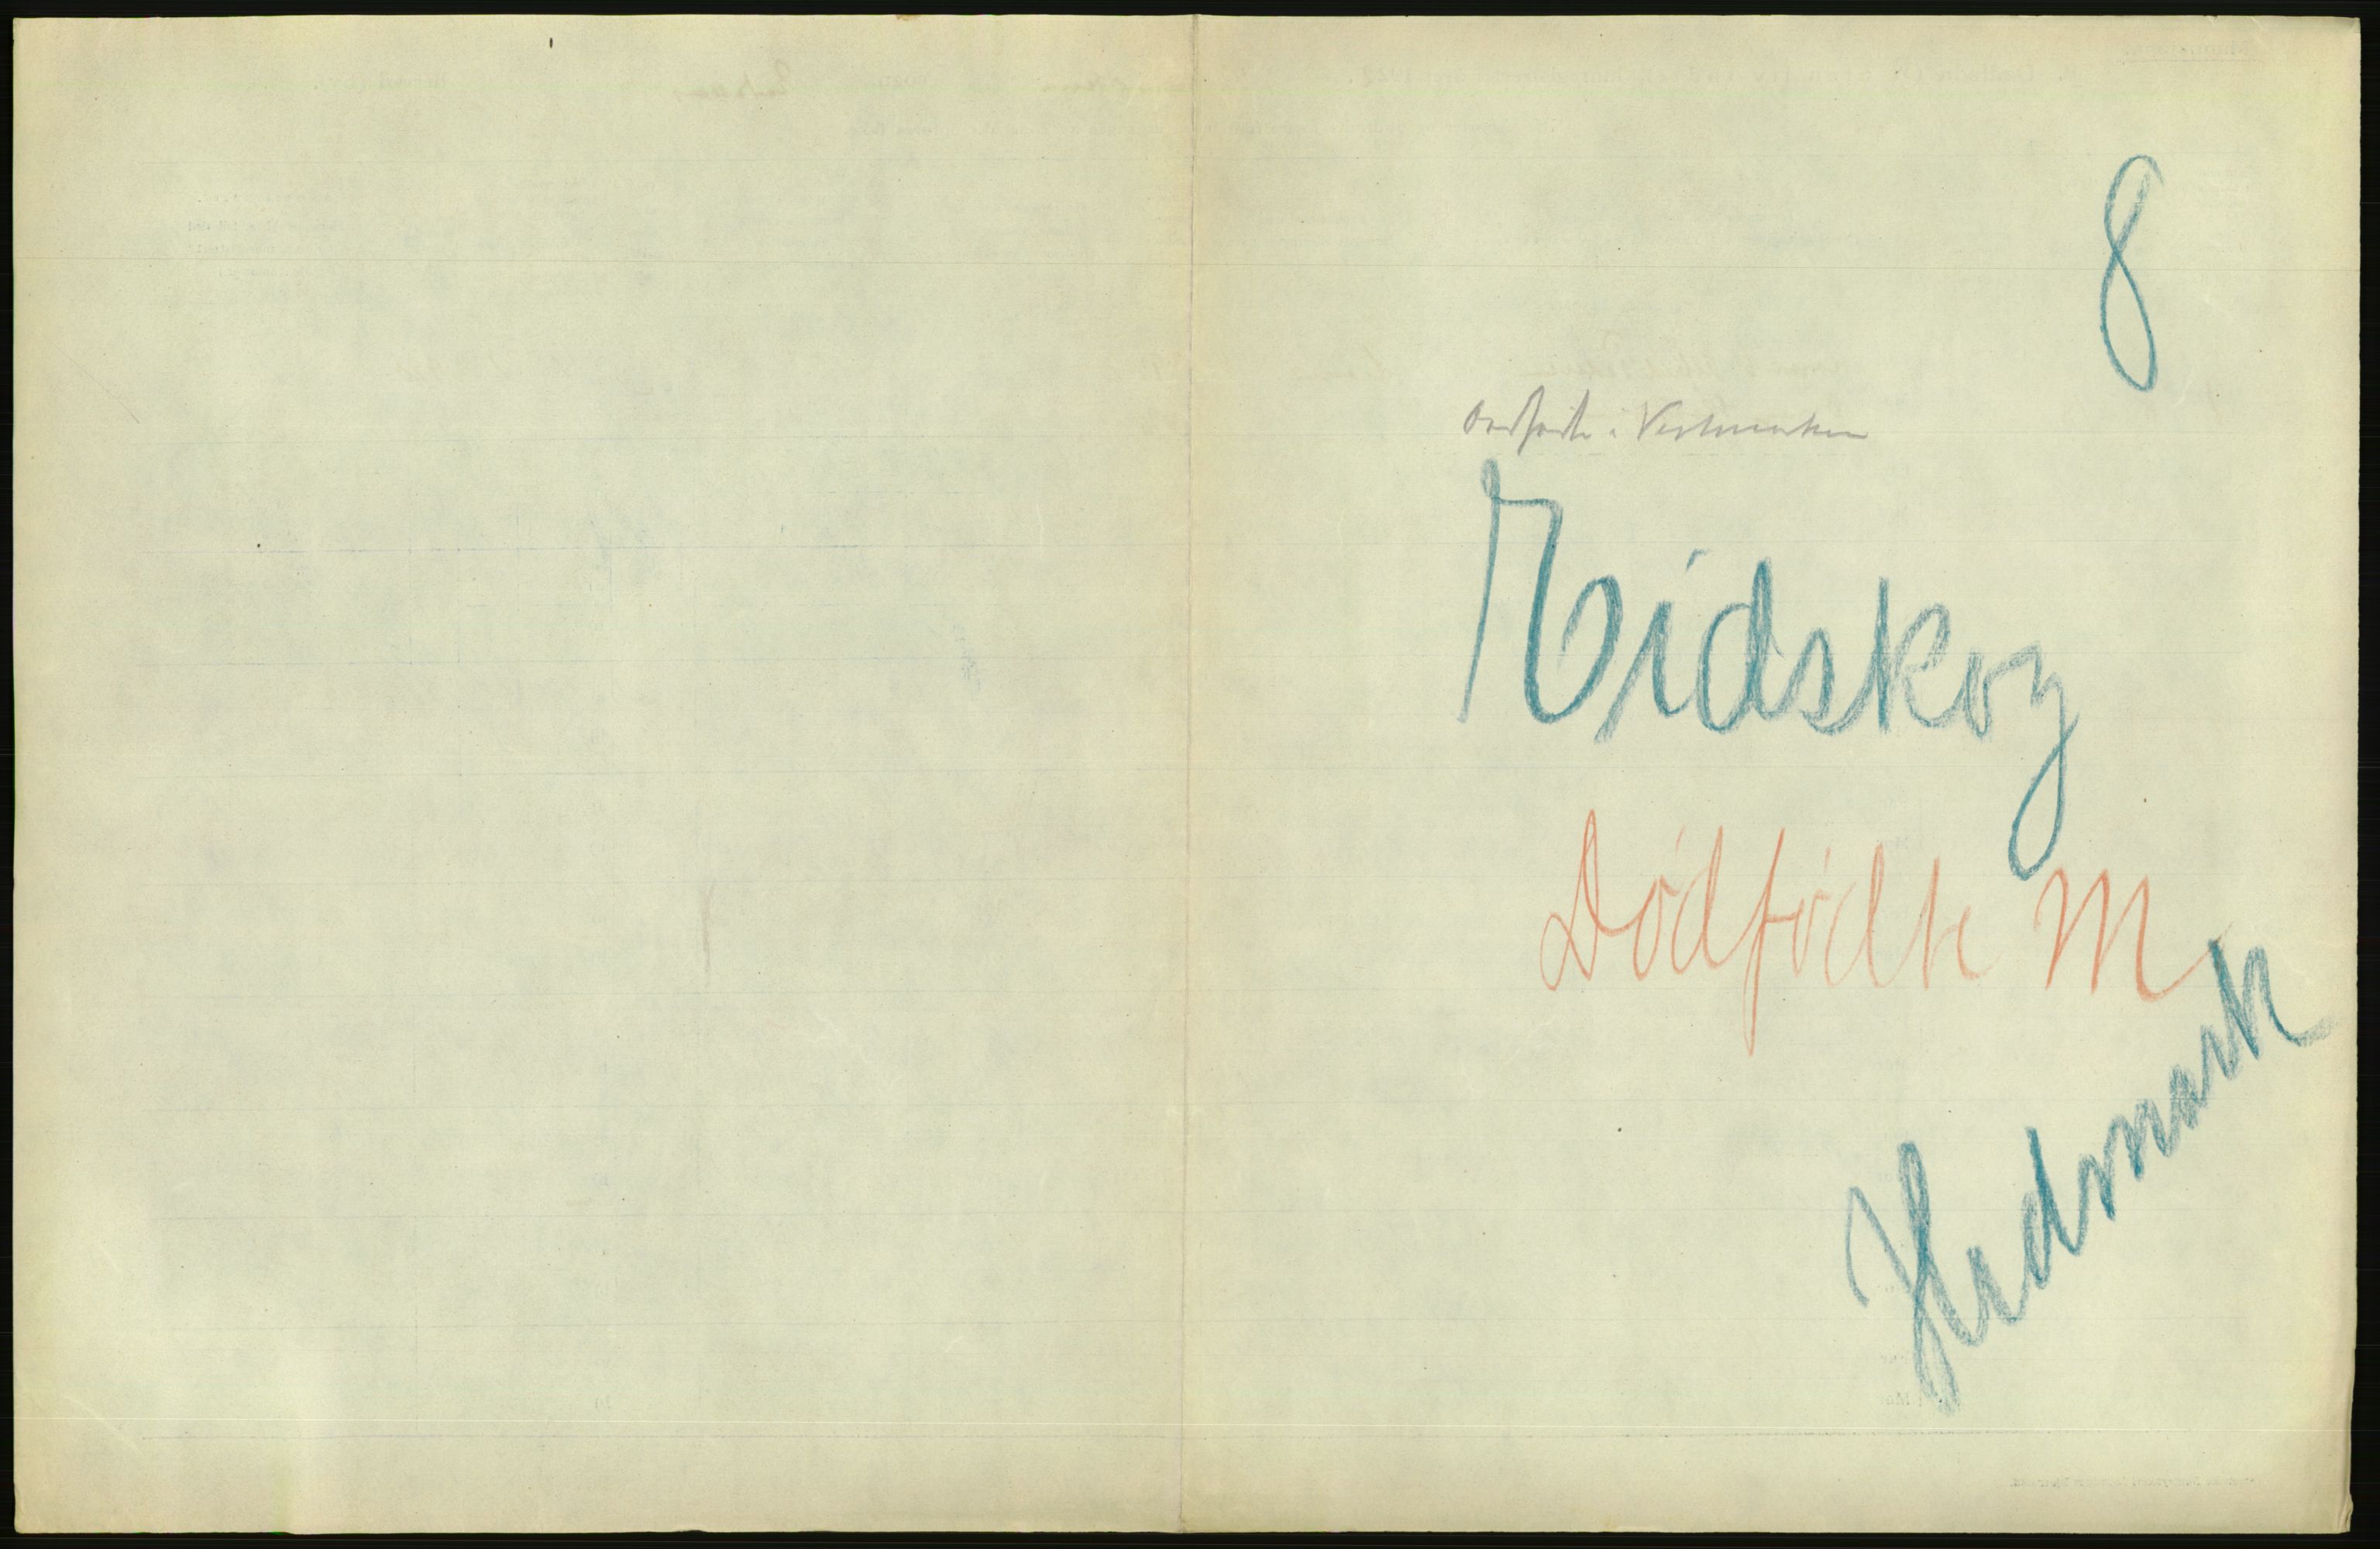 8
Dødfødte i Vestmarken
Eidskog
Dødfødte M
Hedmark